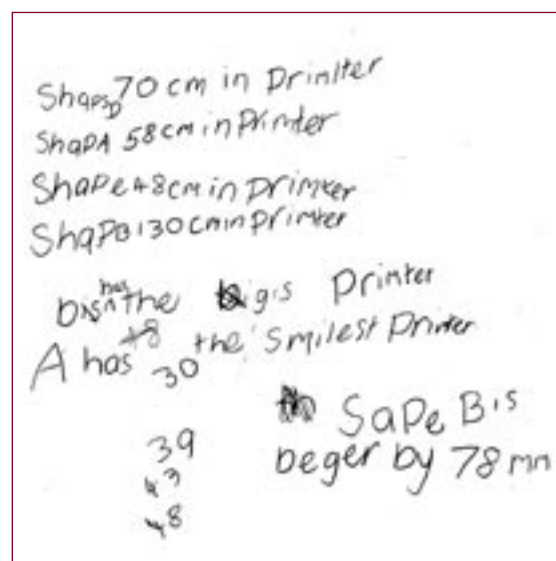 Shape D 70 cm in Drinlter
ShapA 58 cm in Printer
Shape 48 cm in primter
ShapB 130 cm in primter
has
the gis printer
A has 30 the smilest Printer
SaPe B is
39 beger by 78 mm
43
48